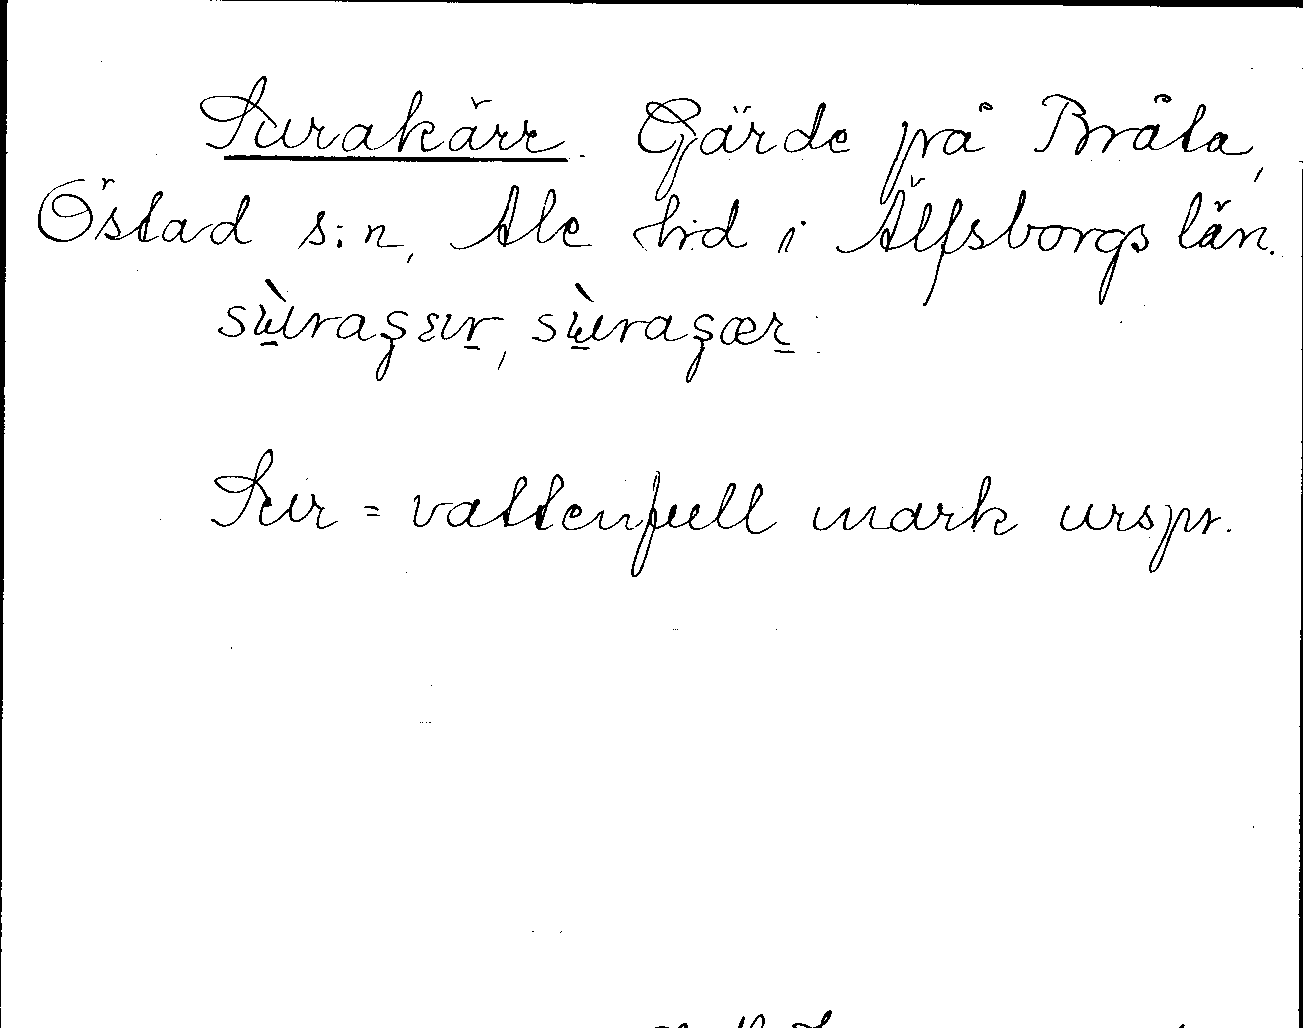 Surakärr. Gärde på Bråta,
Östad s:n, Ale hd i Älfsborgs län.
Sur = vattenfull mark urspr.